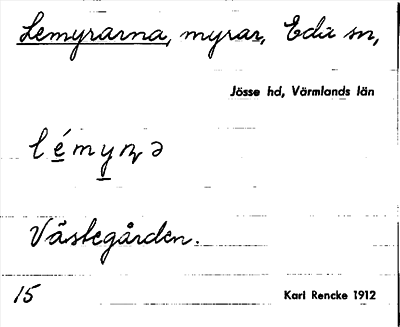 Lemyrarna, myrar, Eda sn,
Jösse hd, Värmlands län
Västegården.
15 Karl Rencke 1912